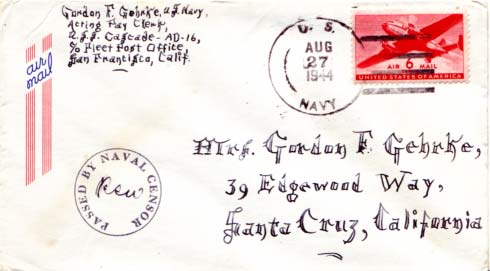 Gordon F. Gehrke, U.S. Navy,
Acting Pay Clerk,
U.S.S. Cascade - AD-16,
c/o Fleet Post Office,
San Francisco, Calif.
air
mail
U. S.
AUG
27
1944
NAVY
AIR 6 MAIL
UNITED STATES OF AMERICA
Mrs. Gordon F. Gehrke,
39 Edgewood Way,
Santa Cruz, California
PASSED BY NAVAL CENSOR